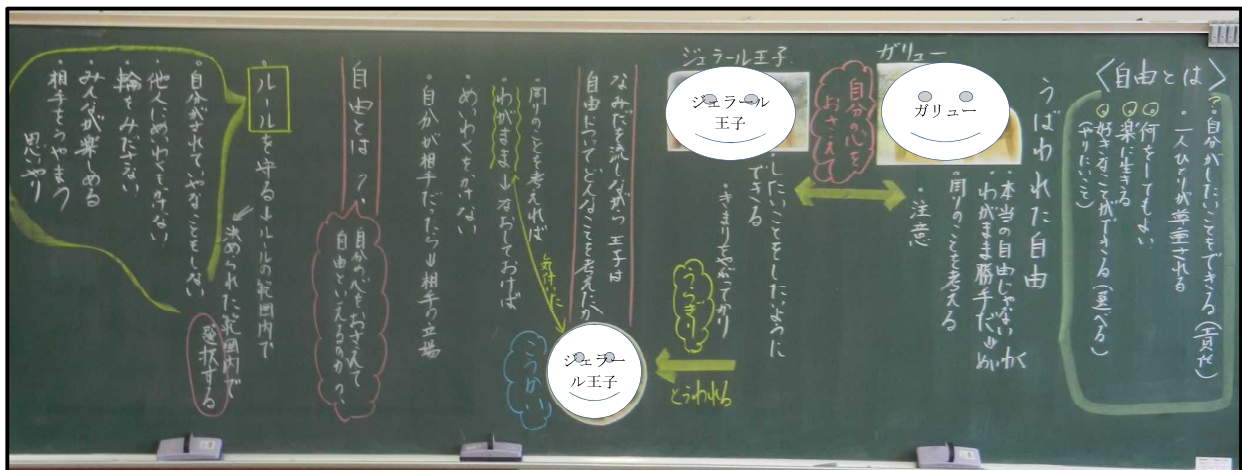 〈自由とは〉
?・自分がしたいことをできる(責任)
・一人ひとりが尊重される
・何をしてもよい
・楽に生きる
・好きなことができる(選べる)
(やりたいこと)
うばわれた自由
ガリュー
ガリュー
・本当の自由じゃない
・わがまま勝手だ⇒めいわく
・周りのことを考える
・注意
自分の心を
おさえて
ジェラール王子
ジェラール
王子
・したいことをしたいように
できる
・きまりをやぶってかり
うらぎり
とらわれる
なみだを流しながら王子は
自由についてどんなことを考えたか
ジェラー
ル王子
気付いた
こうかい
・周りのことを考えれば
・わがまま→なおしておけば
・めいわくをかけない
・自分が相手だったら→相手の立場
自由とは?
自分の心をおさえて
自由といえるのか?
・ルールを守る→ルールの範囲内で
決められた範囲内で
選択する
・自分がされていやなことをしない
・他人にめいわくをかけない
・輪をみださない
・みんなが楽しめる
・相手をうやまう
思いやり